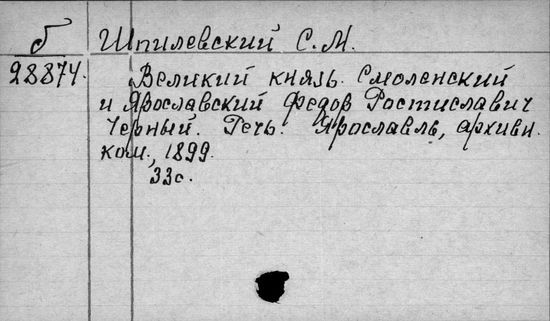 б Шпилевский С.М.
28874. Великий князь Смоленский
и Ярославский Федор Ростиславич
Черный. Речь. Ярославль, архивн.
ком., 1899.
33с.